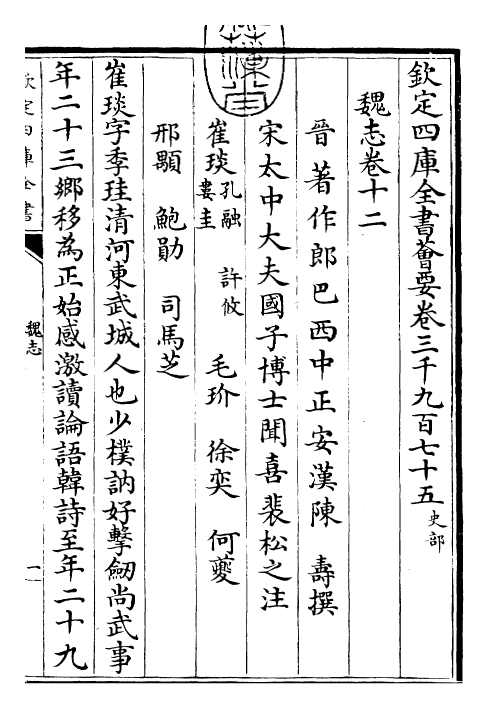 欽定四庫全書薈要卷三千九百七十五 史部
魏志卷十二
晉著作郎巴西中正安漢陳 壽撰
宋太中大夫國子博士聞喜裴松之注
崔琰 孔融 許攸 婁圭 毛玠 徐奕 何夔
邢顒 鮑勛 司馬芝
崔琰字季珪清河東武城人也少樸訥好擊劒尚武事
年二十三鄉移為正始感激讀論語韓詩至年二十九
欽定四庫全書
魏志
一